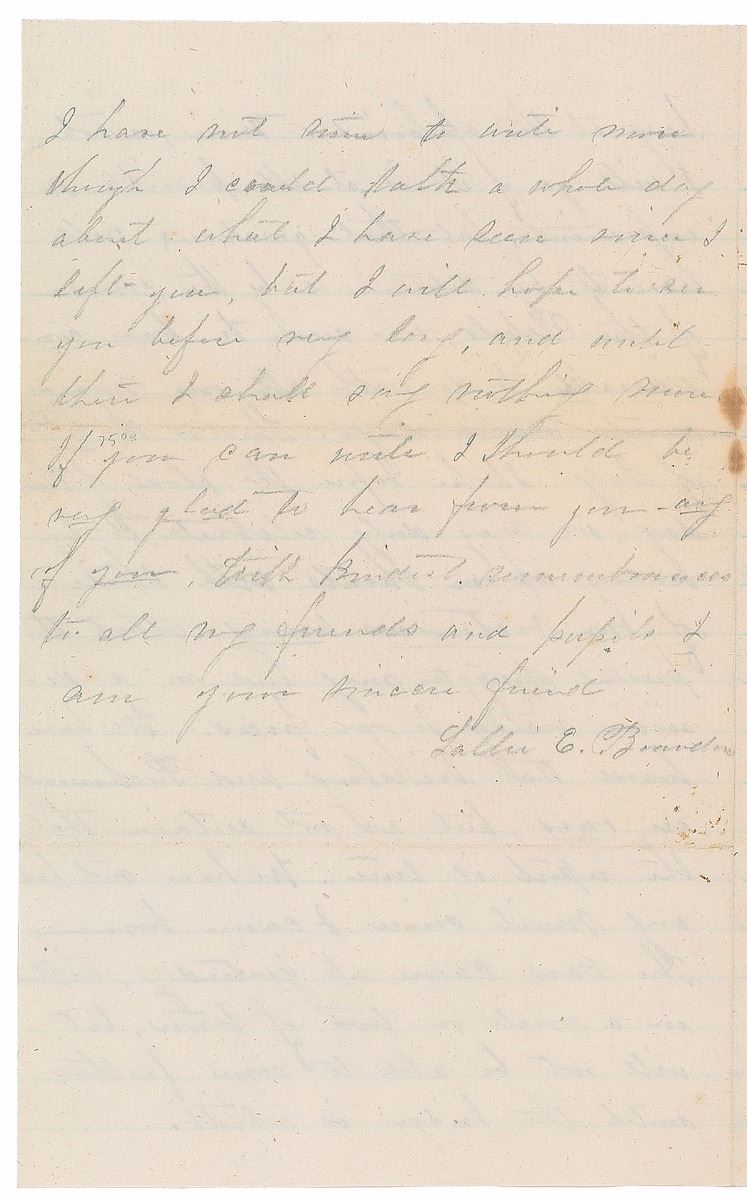 I have not time to write more
though I could talk a whole day
about what I have seen since I
left you, but I will hope to see
you before very long, and until
then I shall say nothing more.
If you can write I should be
very glad to hear from you - any
of you. With kindest remembrances
to all my friends and pupils I
am your sincere friend
Sallie E.
7500